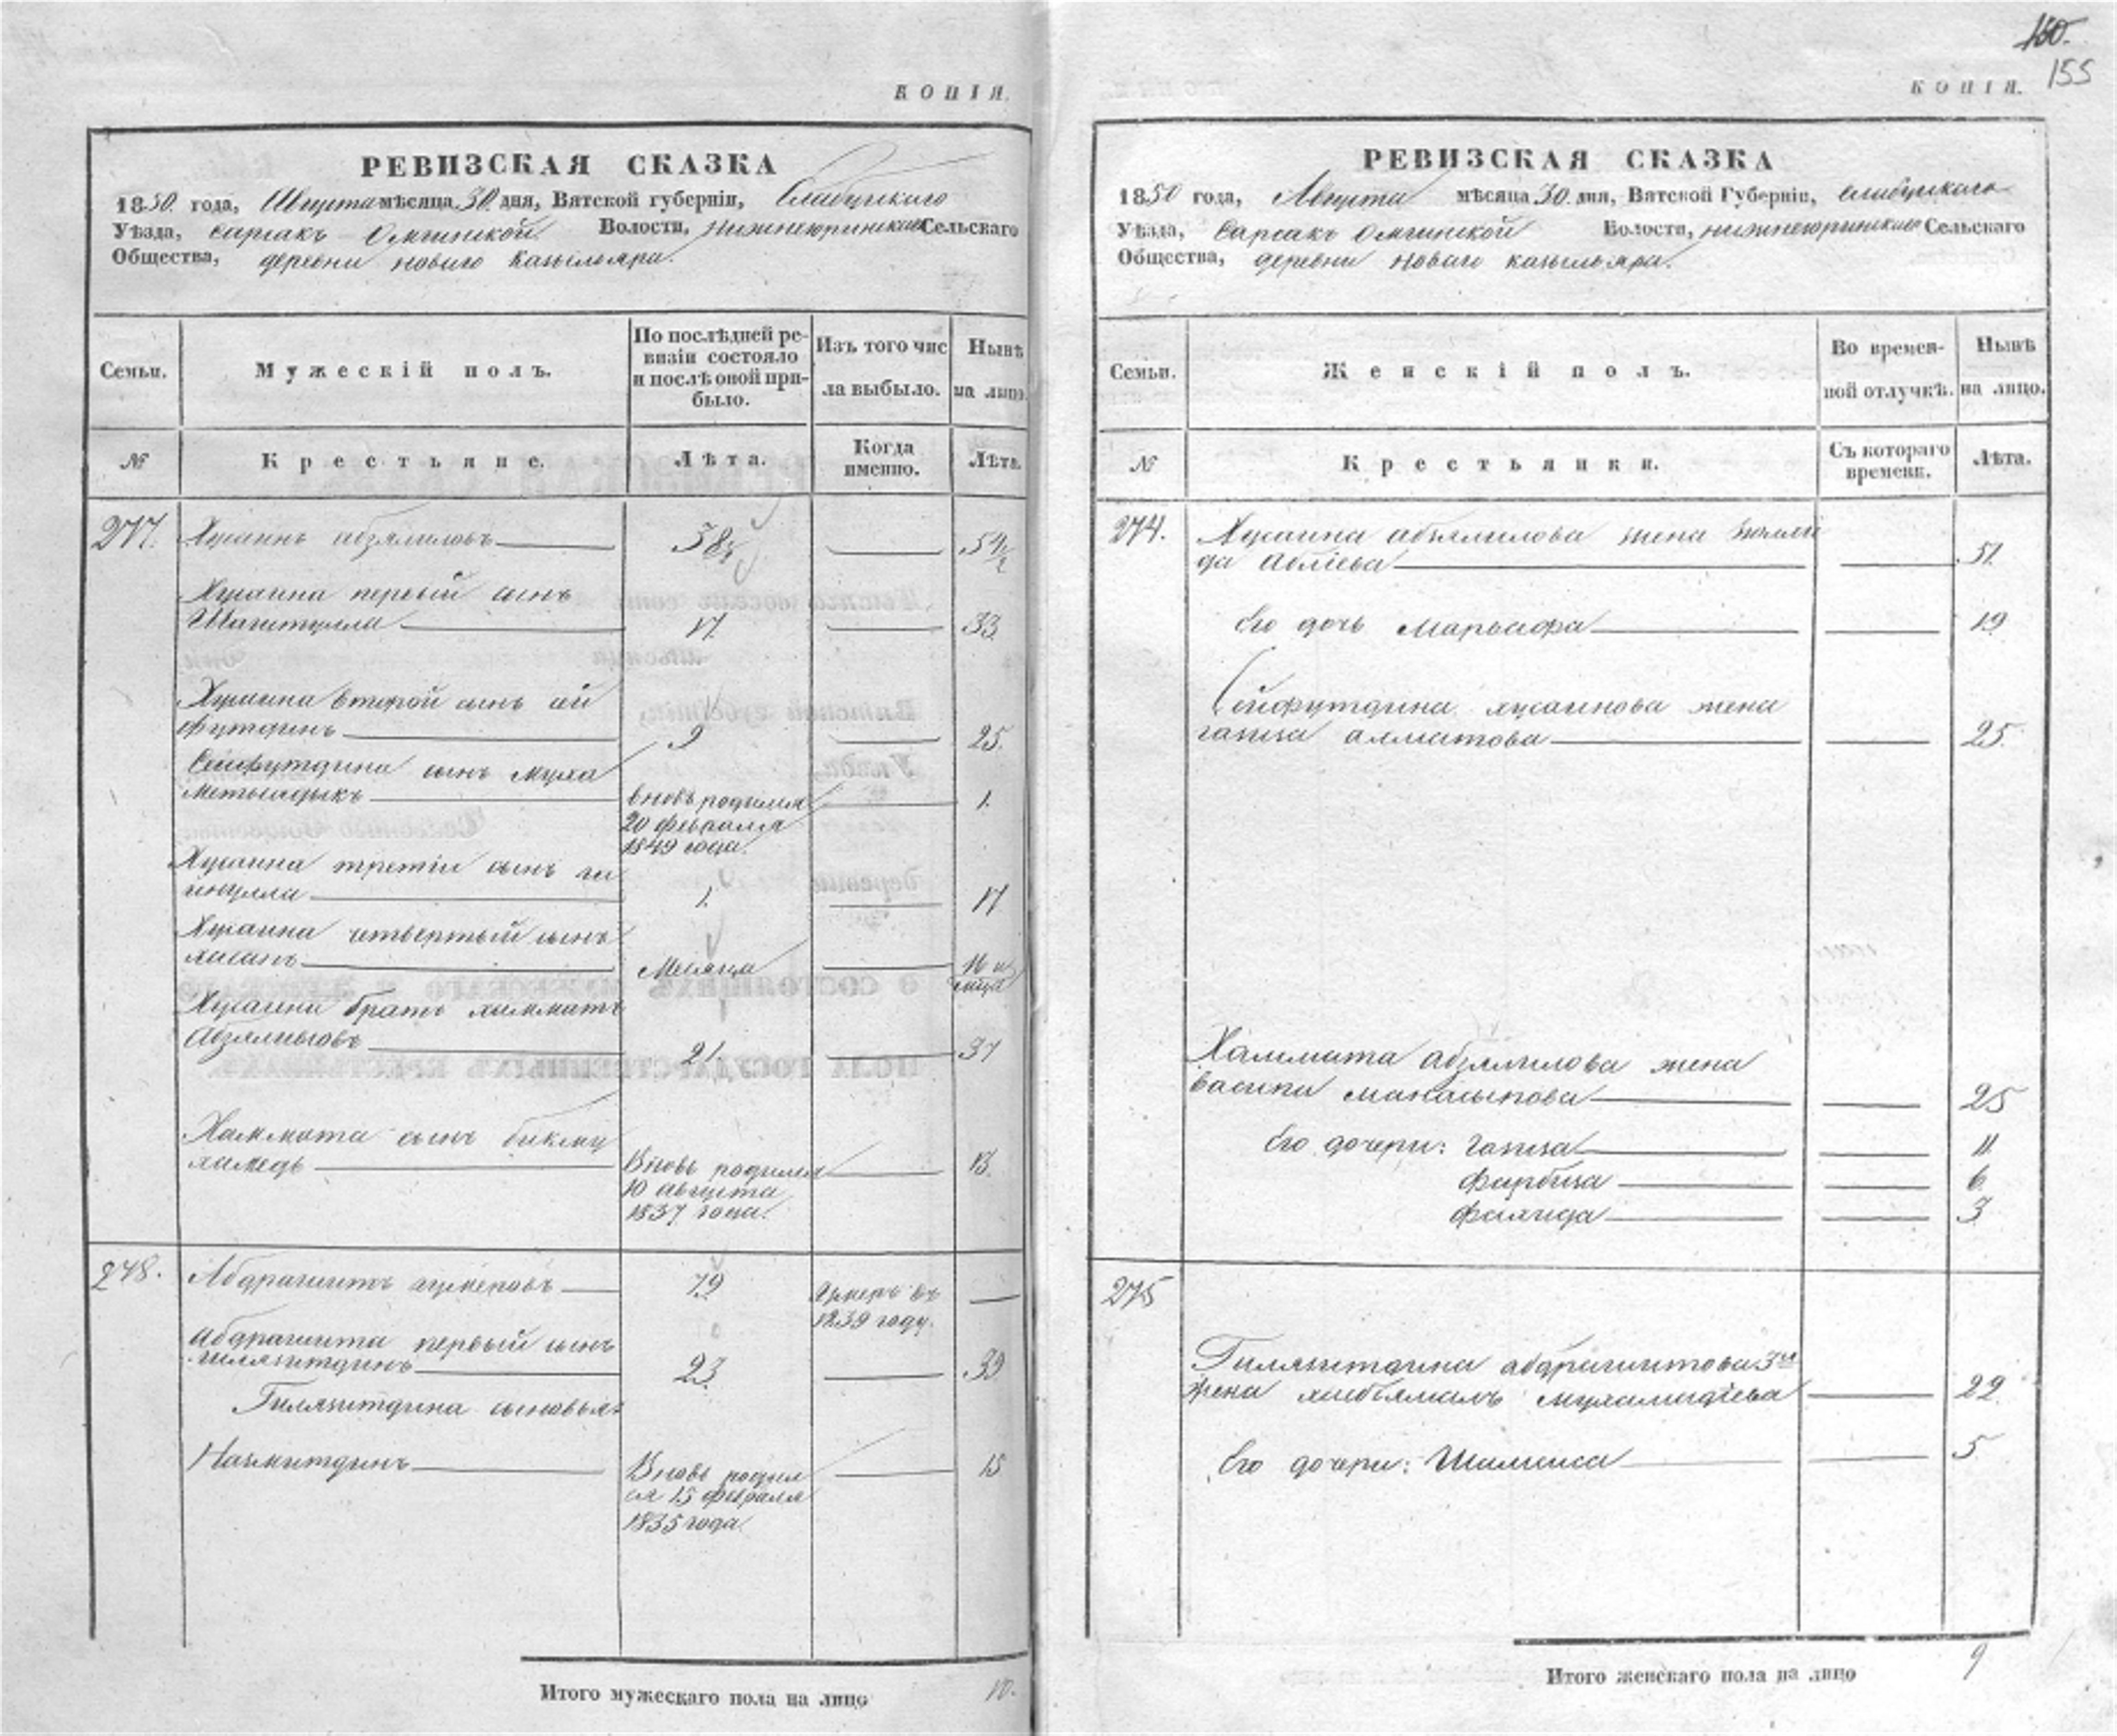 КОПІЯ.
РЕВИЗСКАЯ СКАЗКА
1850 года, Августа мѣсяца 30 дня, Вятской губерніи, Елабугскаго
Уѣзда, Сарсакъ Омгинской Волости, Нижнеюринскаго Сельскаго
Общества, деревни новаго Казыльяра.
Семьи.
Мужескій полъ.
По послѣдней ре-
визіи состояло
и послѣ оной при-
было.
Изъ того чис
ла выбыло.
Нынѣ
на лицо.
№
Крестьяне.
Лѣта.
Когда
именно.
Лѣта.
277. Хусаинъ абзялиловъ 38½ 54½
Хусаина первый сынъ
Шагитулла 17 33
Хусаина второй сынъ сей
футдинъ 9 25
Сейфутдина сынъ муха
метьсадыкъ вновь родился 1
20 февраля
1849 года.
Хусаина третій сынъ
1 17
Хусаина четвертый сынъ
хасанъ Месяца 16 и
Хусаина братъ хамматъ
Абзялиловъ 21 37
Хаммата сынъ бикму
хамедь Вновь родился 13
10 августа
1837 года.
278. Абдрагшитъ 79 Умеръ въ
1839 году.
Абдрагшита первый сынъ
гилязитдинъ 23 39
Гилязитдина сыновья:
Назмитдинъ Вновь родил 15
ся 15 февраля
1835 года
Итого мужескаго пола на лицо 10.
150.
155
КОПІЯ.
РЕВИЗСКАЯ СКАЗКА
1850 года, Августа мѣсяца 30 дня, Вятской Губерніи, елабугскаго
Уѣзда, Сарсакъ Омгинской Волости, нижнеюринскаго Сельскаго
Общества, деревни новаго казыльяра.
Семьи.
Женскій полъ.
Во времен-
ной отлучкѣ.
Нынѣ
на лицо.
№
Крестьянки.
Съ котораго
времени.
Лѣта.
274. Хусаина абзялилова жена
да Абліева 51
Его дочь Марьсафа 19
Сейфутдина хусаинова жена
гапиза алматова 25
Хаммата абзялилова жена
васипи манасыпова 25
Его дочери: гапиза 11
фарбиза 6
фаягида 3
275
Гилязитдина абдрагшитова 3я
жена хабьямалъ мухамидіева 22
Его дочери: Шамсиса 5
Итого женскаго пола на лицо 9